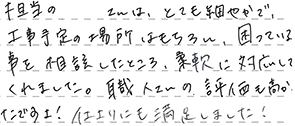 担当の　　　さんは、とても細やかで、
工事予定の場所はもちろん、困っている
事を相談したところ、柔軟に対応して
くれました。職人さんの評価も高か
たですよ！仕上りにも満足しました！